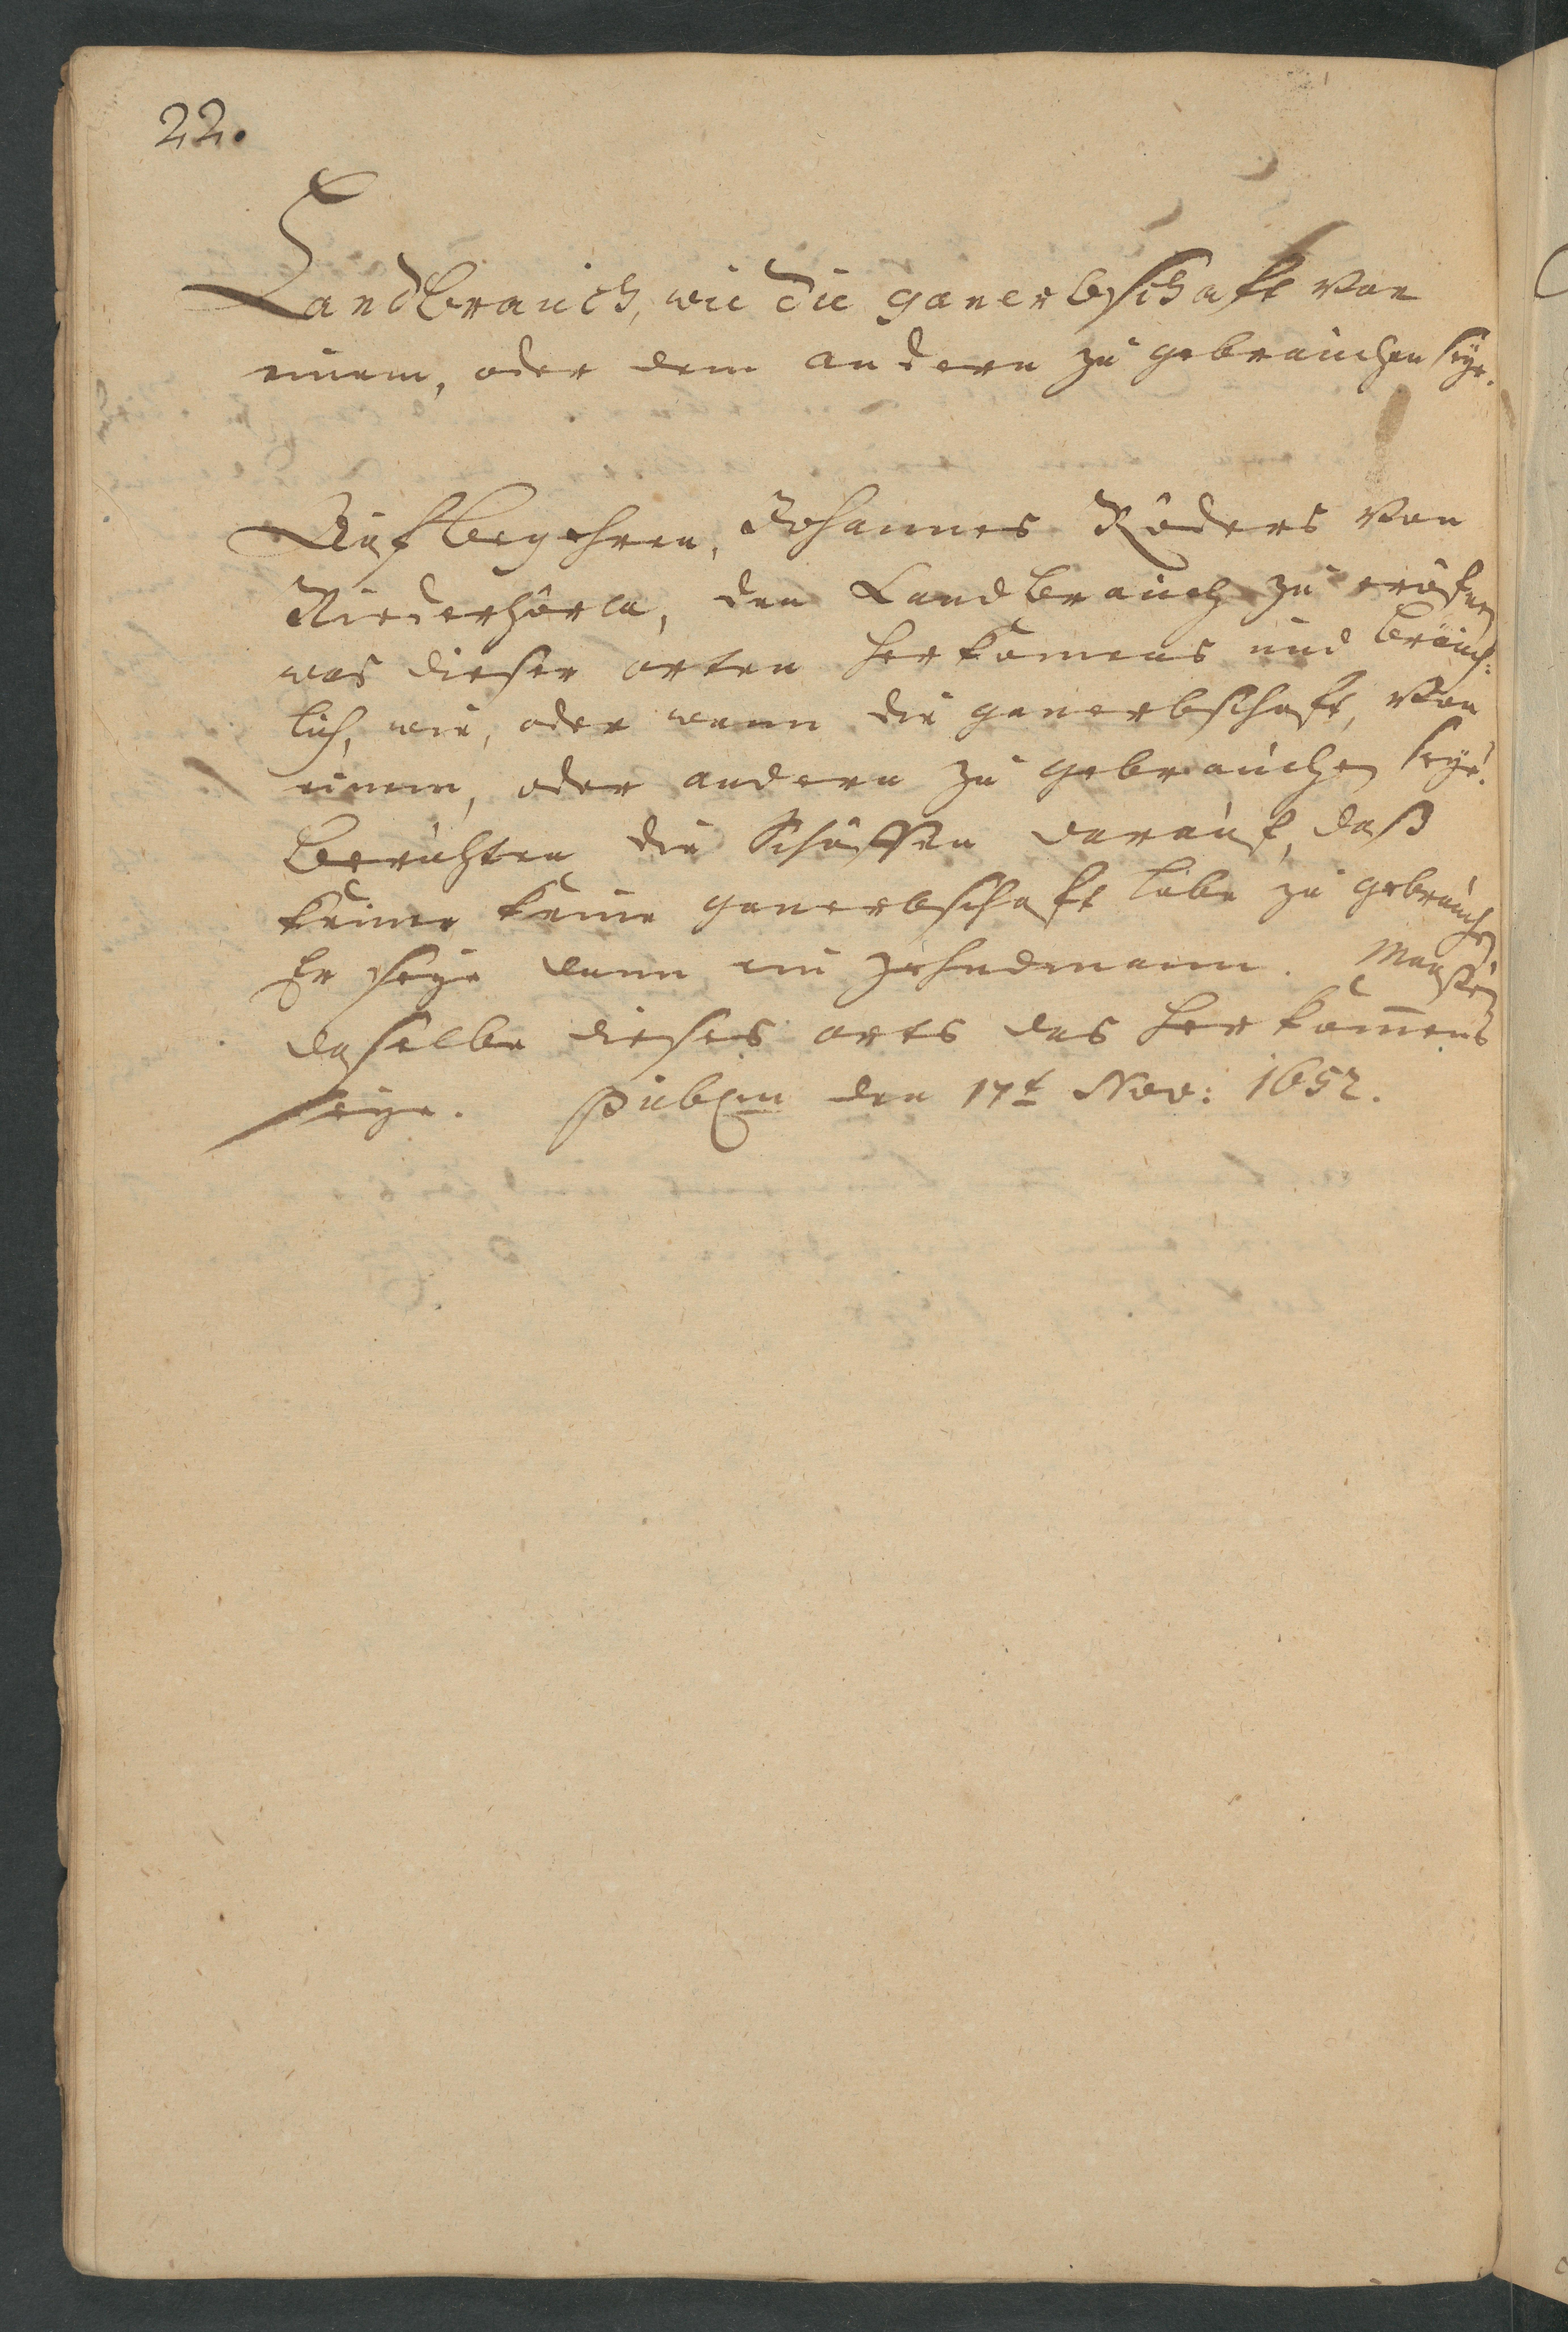 22.
Landbrauch, wie die ganerbschaft von
einem, oder dem andern zu gebrauchen seye.
Auf begehren, Johannes Röders von
Niederhörla, den Landbrauch zu eröfnen
was dieser orten herkomens und bräuch:
lich, wie, oder wann die ganerbschaft, von
einem, oder andern zu gebrauchen seye.
Berichten die Schöffen darauf, daß
keiner keine ganerbschaft habe zu gebrauchen
Er seye dann ein zehndmann. Maaßen
daselbe dieses orts das herkom̅ens
seye. den 17t Nov: 1652.